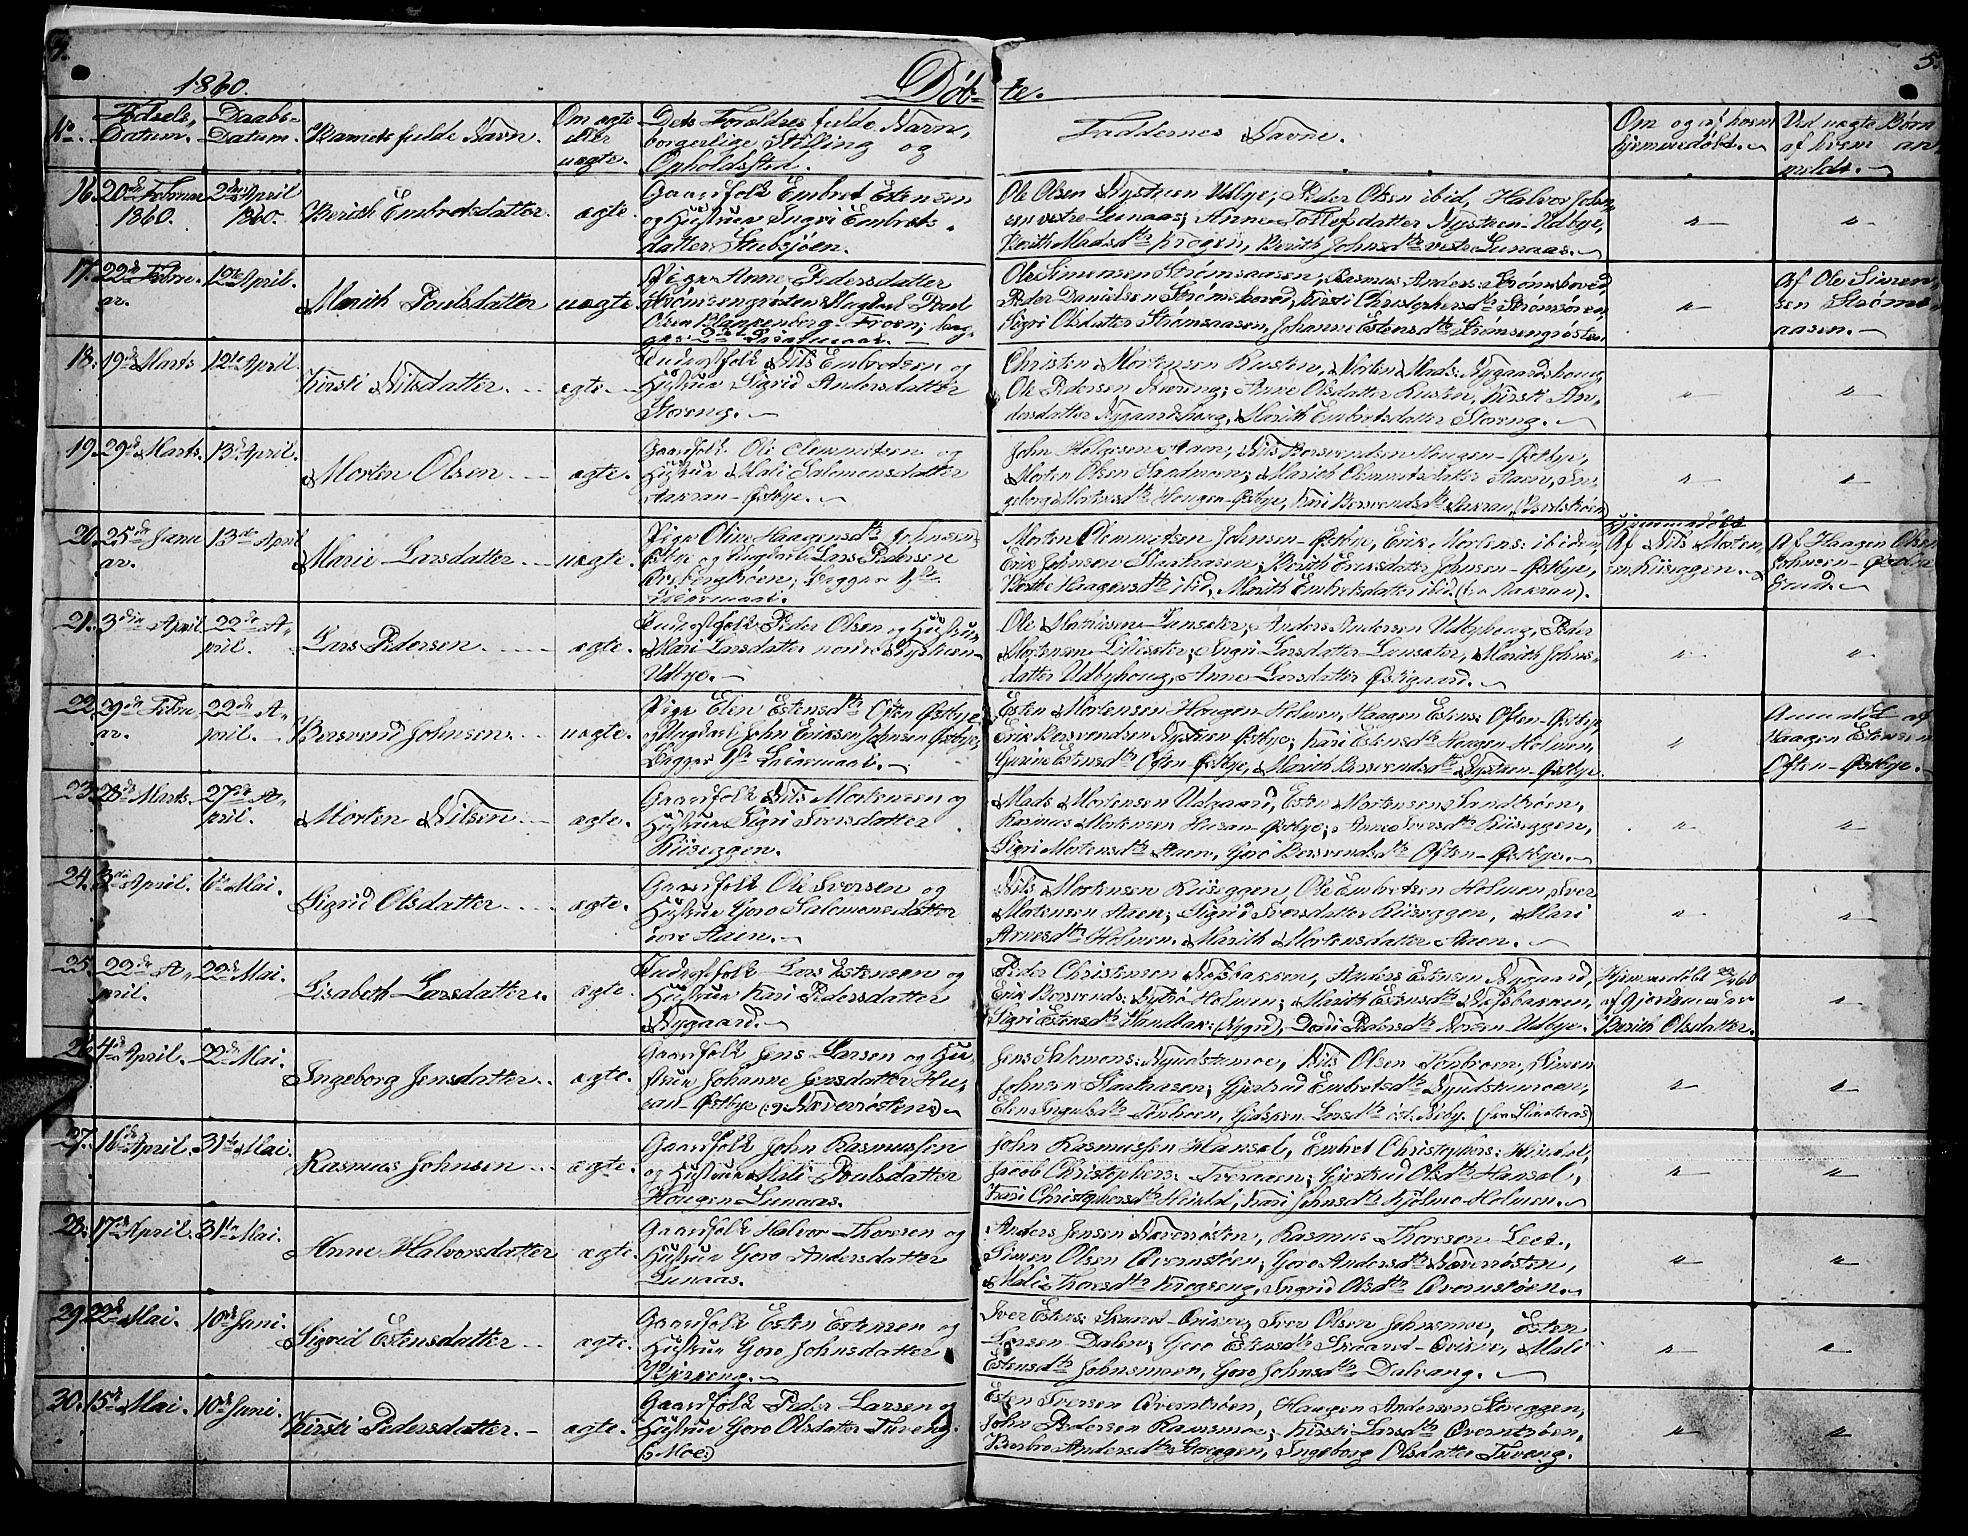 4.
5.
1860.
Døb-
te.
No.
Fødsels-
Datum.
Daabs-
Datum.
Barnets fulde Navn.
Om ægte
eller
uægte.
Dets Forældres fulde Navn,
borgerlige Stilling og
Opholdssted.
Faddernes Navne.
Om og af hvem
hjemmedøbt.
Ved uægte Børn
af hvem an-
meldt.
16.
20de Februar
1860.
2den April
1860.
Berith Embretsdatter.
ægte.
Gaardfolk Embret Estensen
og Hustrue Ingri Embrets-
datter Stubsjøen.
Ole Olsen Nystuen Udbye, Peder Olsen ibid, Halvor John-
sen vestre Lunaas; Anne Tollefsdatter Nystuen-Udbye,
Berith Madsdtr Krogen, Berith Johnsdtr vestre Lunaas.
"
"
17.
22de Febru-
ar.
12te April.
Marith Poulsdatter
uægte.
Pige Anne Pedersdatter
Strømsengrøsten & Ungkarl Poul
Olsen Blankenborg-Troen; beg-
ges 2det Leiermaal.
Ole Simensen Strømsaasen, Rasmus Anders: Strømshoved,
Peder Danielsen Strømshoved, Kirsti Christophersdtr Strømsøren,
Sigri Olsdatter Strømsaasen, Johanne Estensdtr Strømsengrøsten.
"
Af Ole Simen-
sen Strøms-
aasen.
18.
19de Marts
12te April.
Kirsti Nilsdatter.
ægte
Indrstfolk Nils Embretsen og
Hustrue Sigrid Andersdatter
Storeng.
Christen Mortensen Rusten, Morten Mads: Nygaardshoug,
Ole Pedersen Næreng; Anne Olsdatter Rusten, Kirsti An-
dersdatter Nygaardshoug, Marith Embretsdatter Storeng.
"
"
19.
29de Marts.
13de April.
Morten Olsen
ægte.
Gaardfolk Ole Clemmetsen og
Hustrue Mali Salomonsdatter
Aakran-Østbye.
John Helgesen Aaen, Nils Bersvendsen Hougen-Østbye,
Morten Olsen Sandmoen; Marith Clemmetsdatter Aasen, In-
geborg Mortensdtr Hougen-Østbye, Kari Bersvendsdtr Aakran
"
"
20.
25de Janu-
ar.
13de April
Marie Larsdatter
uægte.
Pige Oline Haagensdtr Johnsen-
Østbye og Ungkarl Lars Pedersen
Begges 1ste
Leiermaal.
Morten Clemmetsen Johnsen-Østbye, Erik Mortens: ibidem,
Erik Johnsen Slaataasen; Berith Ericsdatter Johnsen-Østbye,
Berthe Haagensdtr ibid, Marith Embretsdatter ibid. (fra Aakran).
Hjemmedøbt
Af Nils Morten-
sen Kiiseggen.
Af Haagen Olsen
Johnsen-Østbye
21.
3die April
22de A-
pril.
Lars Pedersen.
ægte.
Indrstfolk Peder Olsen og Hustrue
Mari Larsdatter Nystuen-
Udbye.
Ole Mathisen Lunsæter, Anders Andersen Udbyhoug, Peder
Mortensen Lillesæter; Ingri Larsdatter Lunsæter, Marith Johns-
datter Udbyhoug, Anne Larsdatter Østigaard.
"
"
22.
29de Febru-
ar.
22de A-
pril.
Bersvend Johnsen.
uægte.
Pige Elen Estensdtr Often Østbye
og Ungkarl John Ericsen Johnsen Østbye;
Begges 1ste Leiermaal.
Esten Mortensen Hougen Holmen, Haagen Estens: Often-Østbye,
Erik Bersvendsen Nystuen Østbye; Kari Estensdtr Hougen Holmen,
Gurine Estensdtr Often Østbye, Marith Bersvendsdtr Nystuen-Østbye.
"
Anmeldt af
Haagen Estensen
Often-Østbye.
23.
28de Marts
27de A-
pril.
Morten Nilsen
ægte.
Gaardfolk Nils Mortensen og
Hustrue Sigri Iversdatter
Kiiseggen.
Mads Mortensen Udgaard, Esten Mortensen Sandtrøen,
Rasmus Mortensen Husan-Østbye; Anne Iversdtr Kiiseggen,
Sigri Mortensdtr Aaen, Goro Bersvendsdtr Often-Østbye.
"
"
24.
3die April.
6te Mai.
Sigrid Olsdatter
ægte.
Gaardfolk Ole Iversen og
Hustrue Goro Salomonsdatter
øvre Aaen.
Nils Mortensen Kiiseggen, Ole Embretsen Holmen, Iver
Mortensen Aaen; Sigrid Iversdatter Kiiseggen, Mari
Arnesdtr Holmen, Marith Mortensdatter Aaen.
"
"
25.
22de A-
pril.
22de Mai.
Lisabeth Larsdatter.
ægte.
Indrstfolk Lars Estensen og
Hustrue Kari Pedersdatter
Nygaard.
Peder Christensen Næsbakken, Anders Estensen Nygaard,
Erik Bersvends: Nytrø Holmen; Marith Estensdtr Næsbakken,
Sigri Estensdtr (Nygrd), Dordi Pedersdtr Udbye.
Hjemmedøbt
af Gjordemoder
Berith Olsdatter.
"
26.
4de April.
22de Mai.
Ingeborg Jensdatter.
ægte.
Gaardfolk Jens Larsen og Hu-
strue Johanne Jensdatter Hu-
san-Østbye (: Næverrøsten:)
Jens Salmons: Nyodstumoe, Nils Olsen Simen
Johnsen Slaataasen; Gjertrud Embretsdtr Nyodstumoen,
Elen Ingulsdtr
"
"
27.
16de April.
31te Mai.
Rasmus Johnsen
ægte.
Gaardfolk John Rasmussen
og Hustrue Mali Poulsdatter
Hougen-Lunaas.
John Rasmussen Hansøl, Embret Christophers:
Jacob Christophers: Gjertrud Olsdtr Hansøl,
Kari Christophersdtr Kari Johnsdtr Kjølmo-Holmen.
"
"
28.
17de April.
31te Mai.
Anne Halvorsdatter
ægte.
Gaardfolk Halvor Thoresen og
Hustrue Goro Andersdatter
Lunaas.
Anders Jensen Næverrøsten, Rasmus Thoresen Lees,
Simen Olsen Qvernstøen; Goro Andersdtr Næverrøsten,
Mali Thoresdtr Krogseng, Ingrid Olsdtr Qvernstøen.
"
"
29.
22de Mai.
10de Juni.
Sigrid Estensdatter
ægte.
Gaardfolk Esten Estensen og
Hustrue Goro Johnsdatter
Bjerkeng.
Iver Estens: Iver Olsen Johnsmoe, Esten
Larsen Dalen; Goro Estensdtr Mali
Estensdtr Johnsmoen, Goro Johnsdtr Dalvang.
"
"
30.
15de Mai.
10de Juni.
Kirsti Pedersdatter.
ægte.
Gaardfolk Peder Larsen og
Hustrue Goro Olsdatter Tuveng.
(: Moe:)
Esten Iversen Qverntrøen, Haagen Andersen Støeggen,
John Pedersen Kirsti Larsdtr Qverntrøen,
Berbro Andersdtr Støeggen, Ingeborg Olsdatter Tuveng.
"
"